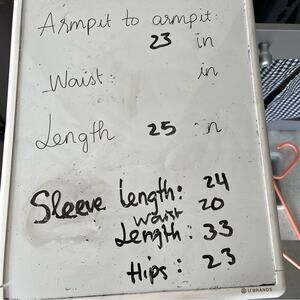 Armpit to armpit:
23 in
Waist: in
Length 25 n
Sleeve Length: 24
waist 20
Length: 33
Hips: 23
U BRANDS